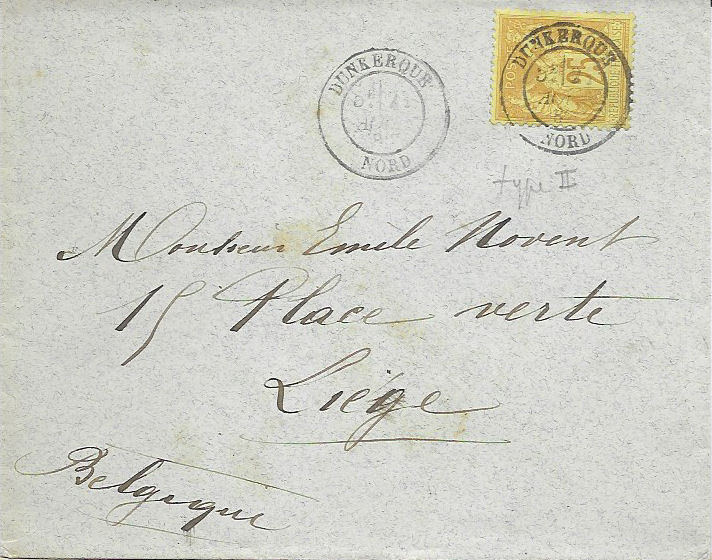 DUNKERQUE
NORD
DUNKERQUE
25
NORD
type II
Monsieur Emile Novent
15 Place verte
Liége
Belgique